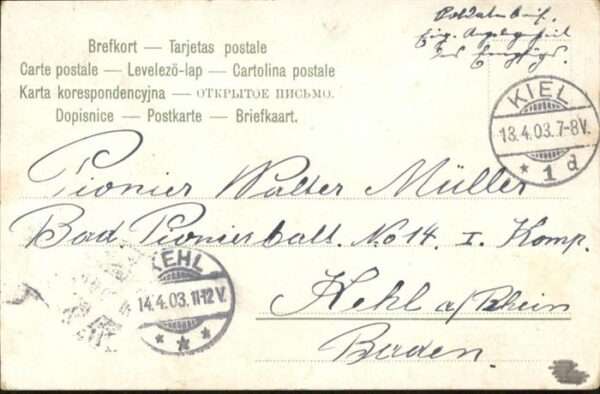 Brefkort — Tarjetas postale
Carte postale — Levelező-lap — Cartolina postale
Karta korespondencyjna — ОТКРЫТОЕ ПИСЬМО.
Dopisnice — Postkarte — Briefkaart.
Soldatenbrief.
Eig. Angelegenheit
des Empfgs.
KIEL
13.4.03.7-8V.
* 1 d
Pionier Walter Müller
Bad. Pionierbatt. No 14. I. Komp.
KEHL
14.4.03.11-12V.
* * *
Kehl a/Rhein
Baden.